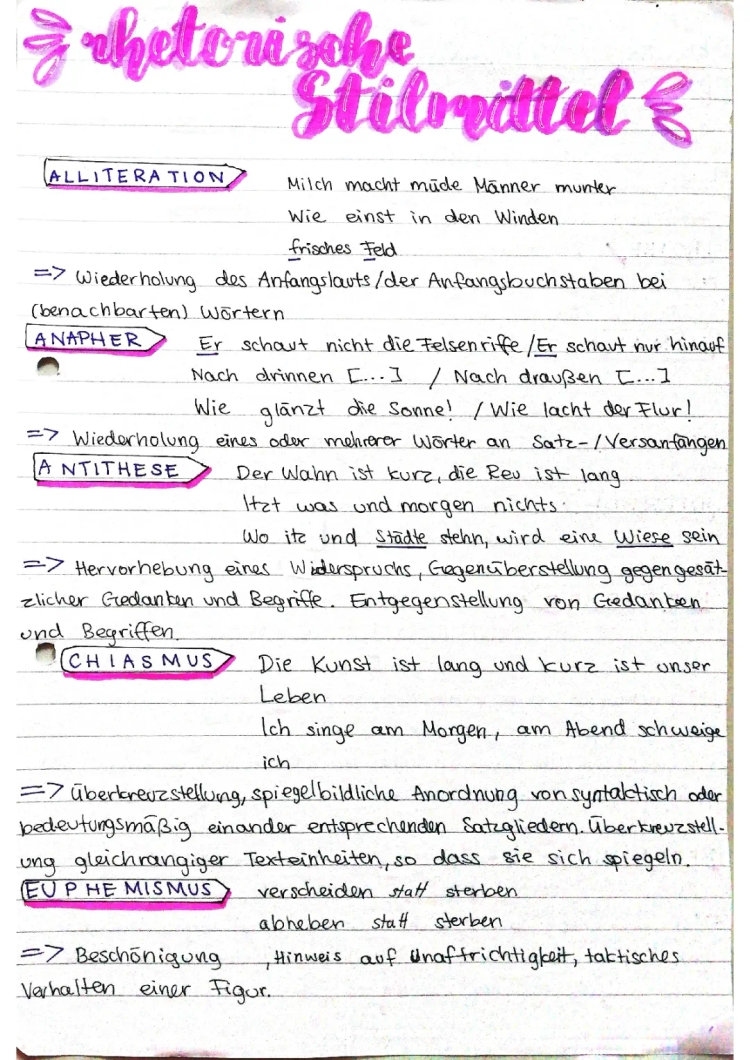 rhetorische
Stilmittel
ALLITERATION Milch macht müde Männer munter
Wie einst in den Winden
frisches Feld
=> Wiederholung des Anfangslauts/der Anfangsbuchstaben bei
(benachbarten) Wörtern
ANAPHER Er schaut nicht die Felsenriffe/Er schaut nur hinauf
Nach drinnen [...] / Nach draußen [...]
Wie glänzt die Sonne! / Wie lacht der Flur!
=> Wiederholung eines oder mehrerer Wörter an Satz-/Versanfängen
ANTITHESE Der Wahn ist kurz, die Reu ist lang
Itzt was und morgen nichts.
Wo itz und Städte stehn, wird eine Wiese sein
=> Hervorhebung eines Widerspruchs, Gegenüberstellung gegengesät-
zlicher Gedanken und Begriffe. Entgegenstellung von Gedanken
und Begriffen.
CHIASMUS Die Kunst ist lang und kurz ist unser
Leben
Ich singe am Morgen, am Abend schweige
ich
=> Überkreuzstellung, spiegelbildliche Anordnung von syntaktisch oder
bedeutungsmäßig einander entsprechenden Satzgliedern. Überkreuzstell-
ung gleichrangiger Texteinheiten, so dass sie sich spiegeln.
EUPHEMISMUS verscheiden statt sterben
abheben statt sterben
=> Beschönigung , Hinweis auf Unaftrichtigkeit, taktisches
Verhalten einer Figur.